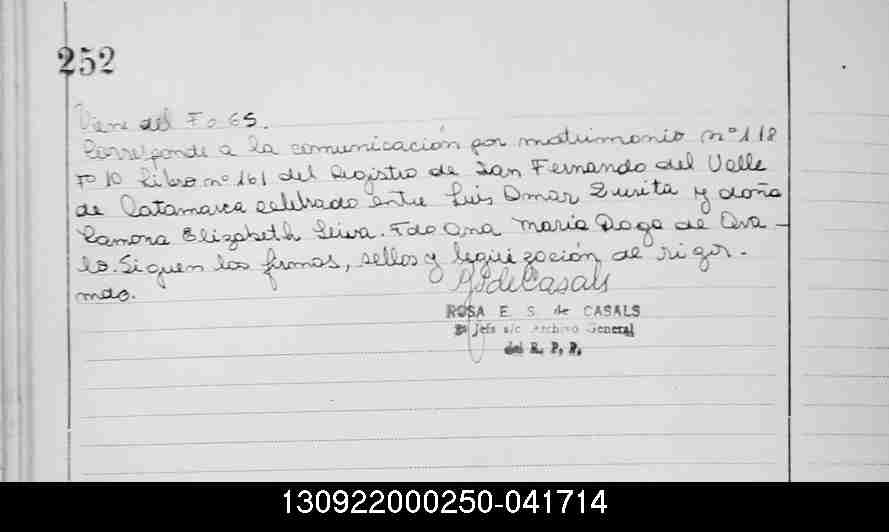 252
Viene del Fo 65.
Corresponde a la comunicación por matrimonio nº 118
Fº 10 Libro nº 161 del Registro de San Fernando del Valle
de Catamarca celebrado entre Luis Omar Zurita y doña
Ramona Elizabeth Leiva. Fdo Ana Maria Dogo de Ova-
lo. Siguen las firmas, sellos y legui zación de rigor.
mdo.
de Casals
ROSA E. S. de CASALS
Jefe a/c Archivo General
del R. P. P.
130922000250-041714